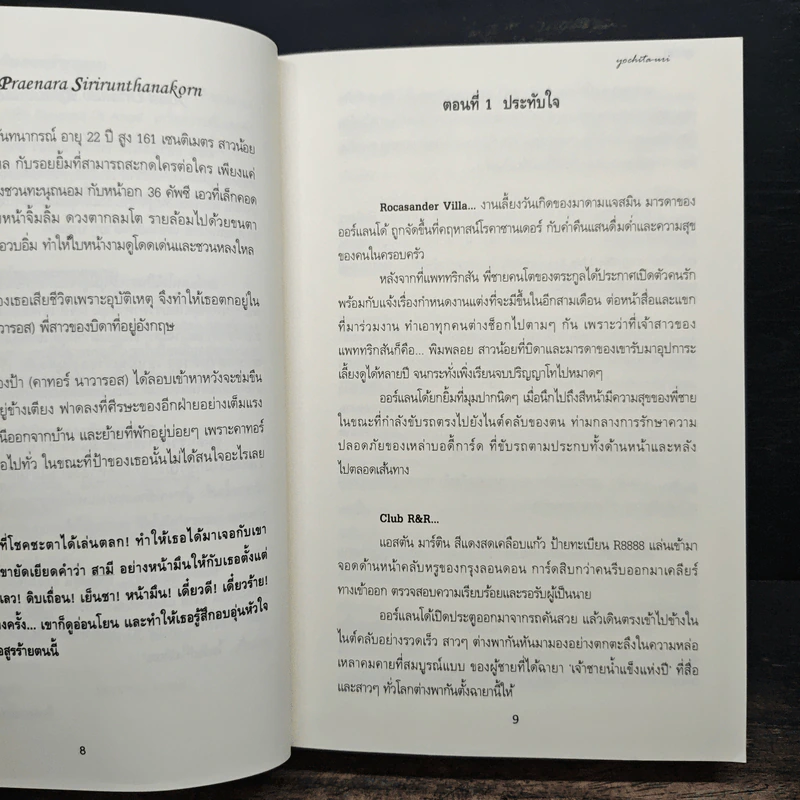 Praenara Sirirunthanakorn
ันทนากรณ์ อายุ 22 ปี สูง 161 เซนติเมตร สาวน้อย
กับรอยยิ้มที่สามารถสะกดใครต่อใคร เพียงแค่
งชวนทะนุถนอม กับหน้าอก 36 คัพซี เอวที่เล็กคอด
บหน้าจิ้มลิ้ม ดวงตากลมโต รายล้อมไปด้วยขนตา
อวบอิ่ม ทำให้ใบหน้างามดูโดดเด่นและชวนหลงใหล
องเธอเสียชีวิตเพราะอุบัติเหตุ จึงทำให้เธอตกอยู่ใน
าวารอส) พี่สาวของบิดาที่อยู่อังกฤษ
องป้า (คาทอร์ นาวารอส) ได้ลอบเข้าหาหวังจะข่มขืน
อยู่ข้างเตียง ฟาดลงที่ศีรษะของอีกฝ่ายอย่างเต็มแรง
นีออกจากบ้าน และย้ายที่พักอยู่บ่อยๆ เพราะคาทอร์
อไปทั่ว ในขณะที่ป้าของเธอนั้นไม่ได้สนใจอะไรเลย
ที่โชคชะตาได้เล่นตลก! ทำให้เธอได้มาเจอกับเขา
ขายัดเยียดคำว่า สามี อย่างหน้ามึนให้กับเธอตั้งแต่
เลว! ดิบเถื่อน! เย็นชา! หน้ามึน! เดี๋ยวดี! เดี๋ยวร้าย!
งครั้ง... เขาก็ดูอ่อนโยน และทำให้เธอรู้สึกอบอุ่นหัวใจ
อสูรร้ายตนนี้
8
yochitauri
ตอนที่ 1 ประทับใจ
Rocasander Villa... งานเลี้ยงวันเกิดของมาดามแจสมิน มารดาของ
ออร์แลนโด้ ถูกจัดขึ้นที่คฤหาสน์โรคาซานเดอร์ กับค่ำคืนแสนดื่มด่ำและความสุข
ของคนในครอบครัว
หลังจากที่แพททริกสัน พี่ชายคนโตของตระกูลได้ประกาศเปิดตัวคนรัก
พร้อมกับแจ้งเรื่องกำหนดงานแต่งที่จะมีขึ้นในอีกสามเดือน ต่อหน้าสื่อและแขก
ที่มาร่วมงาน ทำเอาทุกคนต่างช็อกไปตามๆ กัน เพราะว่าที่เจ้าสาวของ
แพททริกสันก็คือ... พิมพลอย สาวน้อยที่บิดาและมารดาของเขารับมาอุปการะ
เลี้ยงดูได้หลายปี จนกระทั่งเพิ่งเรียนจบปริญญาโทไปหมาดๆ
ออร์แลนโด้ยกยิ้มที่มุมปากนิดๆ เมื่อนึกไปถึงสีหน้ามีความสุขของพี่ชาย
ในขณะที่กำลังขับรถตรงไปยังไนต์คลับของตน ท่ามกลางการรักษาความ
ปลอดภัยของเหล่าบอดี้การ์ด ที่ขับรถตามประกบทั้งด้านหน้าและหลัง
ไปตลอดเส้นทาง
Club R&R...
แอสตัน มาร์ติน สีแดงสดเคลือบแก้ว ป้ายทะเบียน R8888 แล่นเข้ามา
จอดด้านหน้าคลับหรูของกรุงลอนดอน การ์ดสิบกว่าคนรีบออกมาเคลียร์
ทางเข้าออก ตรวจสอบความเรียบร้อยและรอรับผู้เป็นนาย
ออร์แลนโด้เปิดประตูออกมาจากรถคันสวย แล้วเดินตรงเข้าไปข้างใน
ไนต์คลับอย่างรวดเร็ว สาวๆ ต่างพากันหันมามองอย่างตกตะลึงในความหล่อ
เหลาคมคายที่สมบูรณ์แบบ ของผู้ชายที่ได้ฉายา 'เจ้าชายน้ำแข็งแห่งปี' ที่สื่อ
และสาวๆ ทั่วโลกต่างพากันตั้งฉายานี้ให้
9